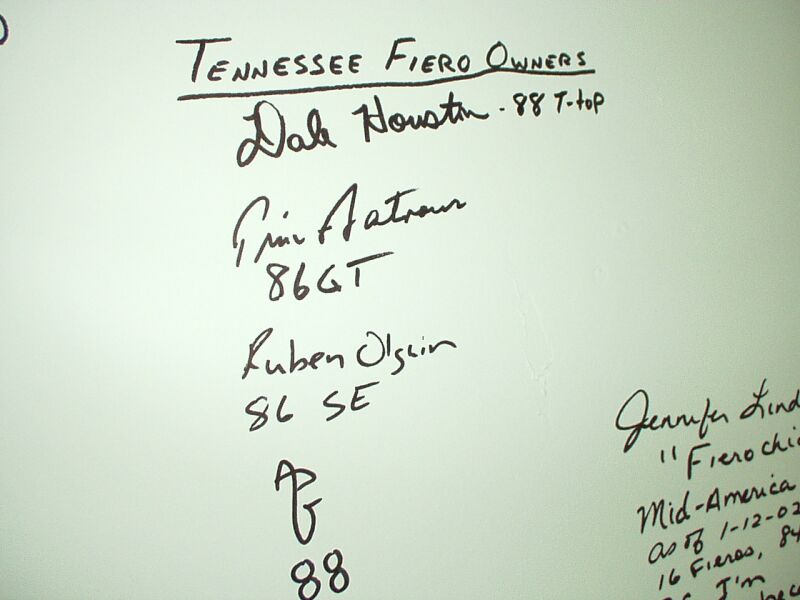 TENNESSEE FIERO OWNERS
Dale Houston - 88 T-top
Tim
86GT
Ruben Olguin
86 SE
88
Jennifer Lind
"Fierochic
Mid-America
as of 1-12-02
16 Fieros, 84
I'm